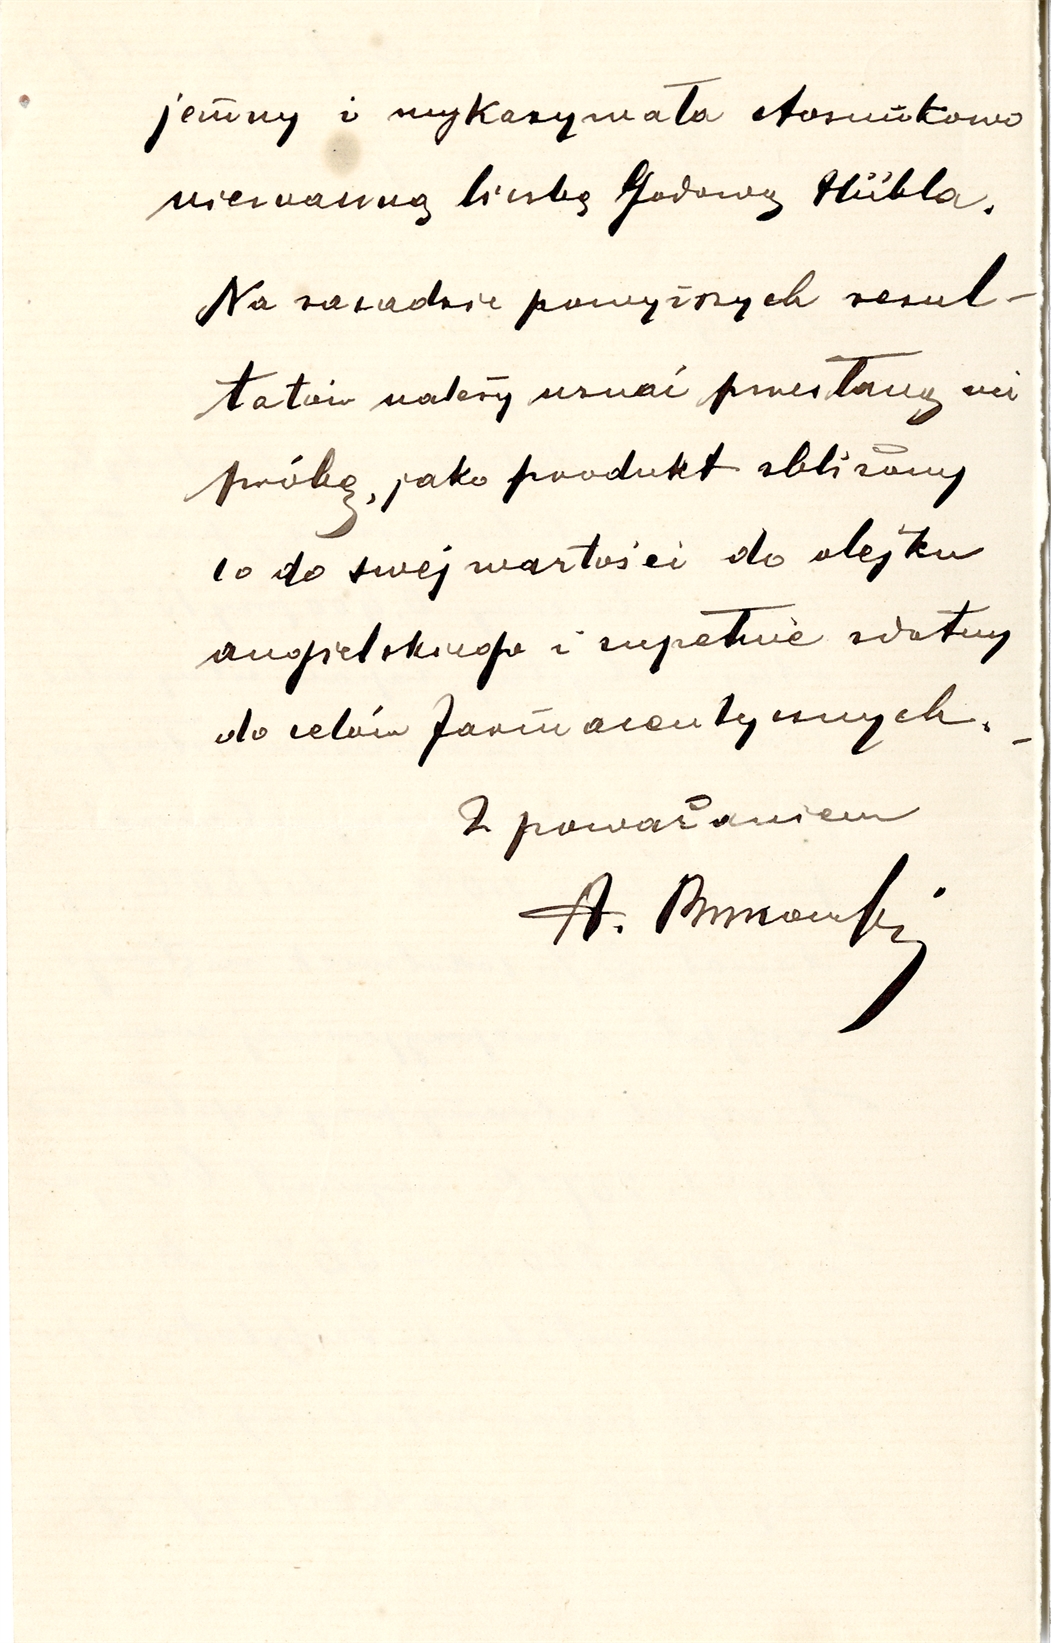 jemny i wykazywała stosunkowo
nieznaczną liczbę Jodową Hübla.
Na zasadzie powyższych rezul-
tatów należy uznać przesłaną mi
próbę, jako produkt zbliżony
co do swej wartości do olejku
angielskiego i zupełnie zdatny
do celów farmaceutycznych. –
Z poważaniem
A. Bukowski